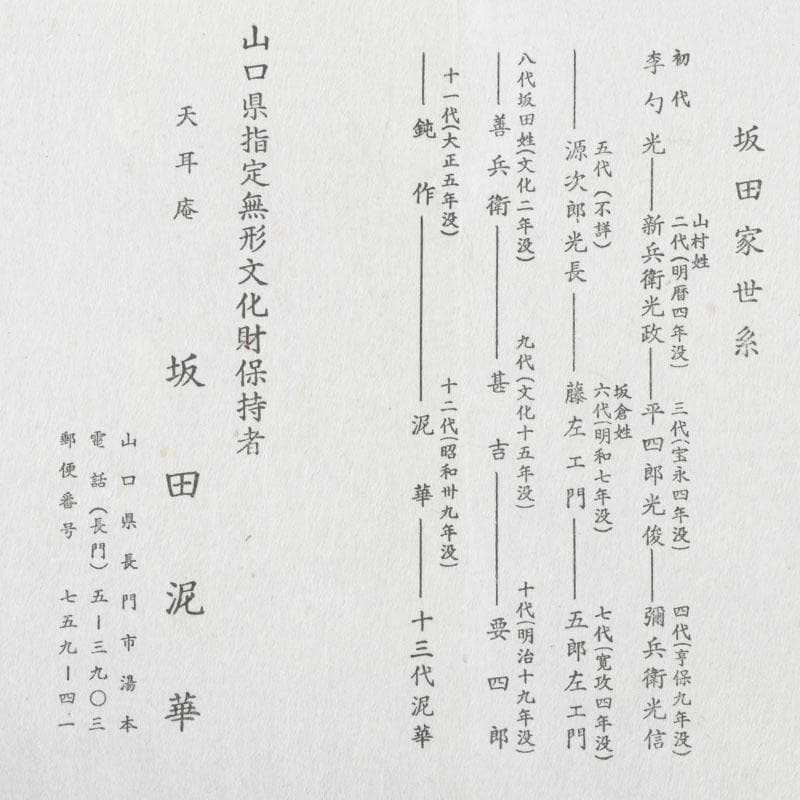 坂田家世系
初代 山村姓 二代(明暦四年没) 三代(宝永四年没) 四代(亨保九年没)
李勺光―新兵衛光政―平四郎光俊―彌兵衛光信
五代(不詳) 坂倉姓 六代(明和七年没) 七代(寛攻四年没)
―源次郎光長―藤左エ門―五郎左エ門
八代坂田姓(文化二年没) 九代(文化十五年没) 十代(明治十九年没)
―善兵衛―甚吉―要四郎
十一代(大正五年没) 十二代(昭和卅九年没)
―鈍作―泥華―十三代泥華
山口県指定無形文化財保持者
天耳庵 坂田泥華
山口県長門市湯本
電話(長門)五―三九〇三
郵便番号 七五九―四一